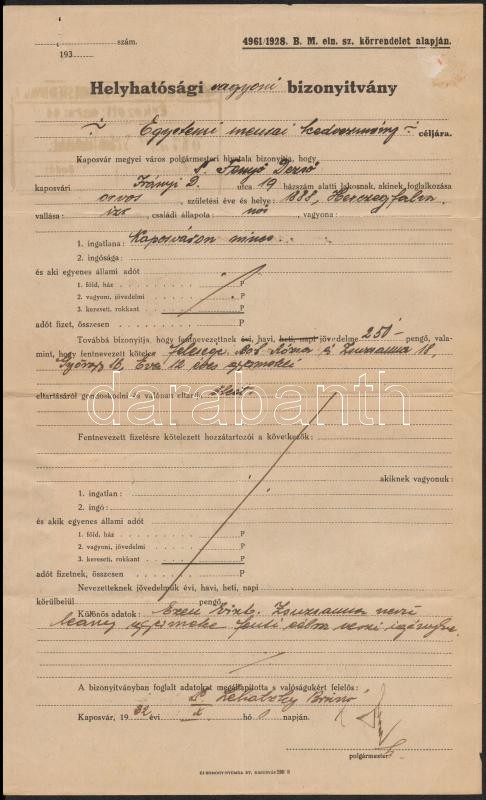 szám. 4961/1928. B. M. eln. sz. körrendelet alapján.
193
Helyhatósági vagyoni bizonyitvány
Egyetemi mensai kedvezmény céljára.
Kaposvár megyei város polgármesteri hivatala bizonyitja, hogy
Dr Fenyő Dezső
kaposvári Irányi D. utca 19 házszám alatti lakosnak, akinek foglalkozása
orvos, születési éve és helye: 1888, Herczegfalva
vallása: izr, családi állapota: nős, vagyona:
1. ingatlana: Kaposváron nincs
2. ingósága:
és aki egyenes állami adót
1. föld, ház P
2. vagyoni, jövedelmi P
3. kereseti, rokkant P
adót fizet, összesen P
Továbbá bizonyitja, hogy fentnevezettnek évi, havi, heti, napi jövedelme 250 pengő, vala-
mint, hogy fentnevezett köteles felesége Róna Zsuzsanna 18,
György 16, Éva 12 éves gyermekei
eltartásáról gondoskodni és valóban eltartó
Fentnevezett fizetésre kötelezett hozzátartozói a következők:
akiknek vagyonuk:
1. ingatlan:
2. ingó:
és akik egyenes állami adót
1. föld, ház P
2. vagyoni, jövedelmi P
3. kereseti, rokkant P
adót fizetnek, összesen P
Nevezetteknek jövedelmük évi, havi, heti, napi
körülbelül pengő.
Különös adatok: Ezen bizt. Zsuzsanna nevű
leány gyermeke fenti célra veszi igénybe.
A bizonyitványban foglalt adatokat megállapitotta s valóságukért felelős:
Dr
Kaposvár, 1932 évi X hó napján.
polgármester
darabanth